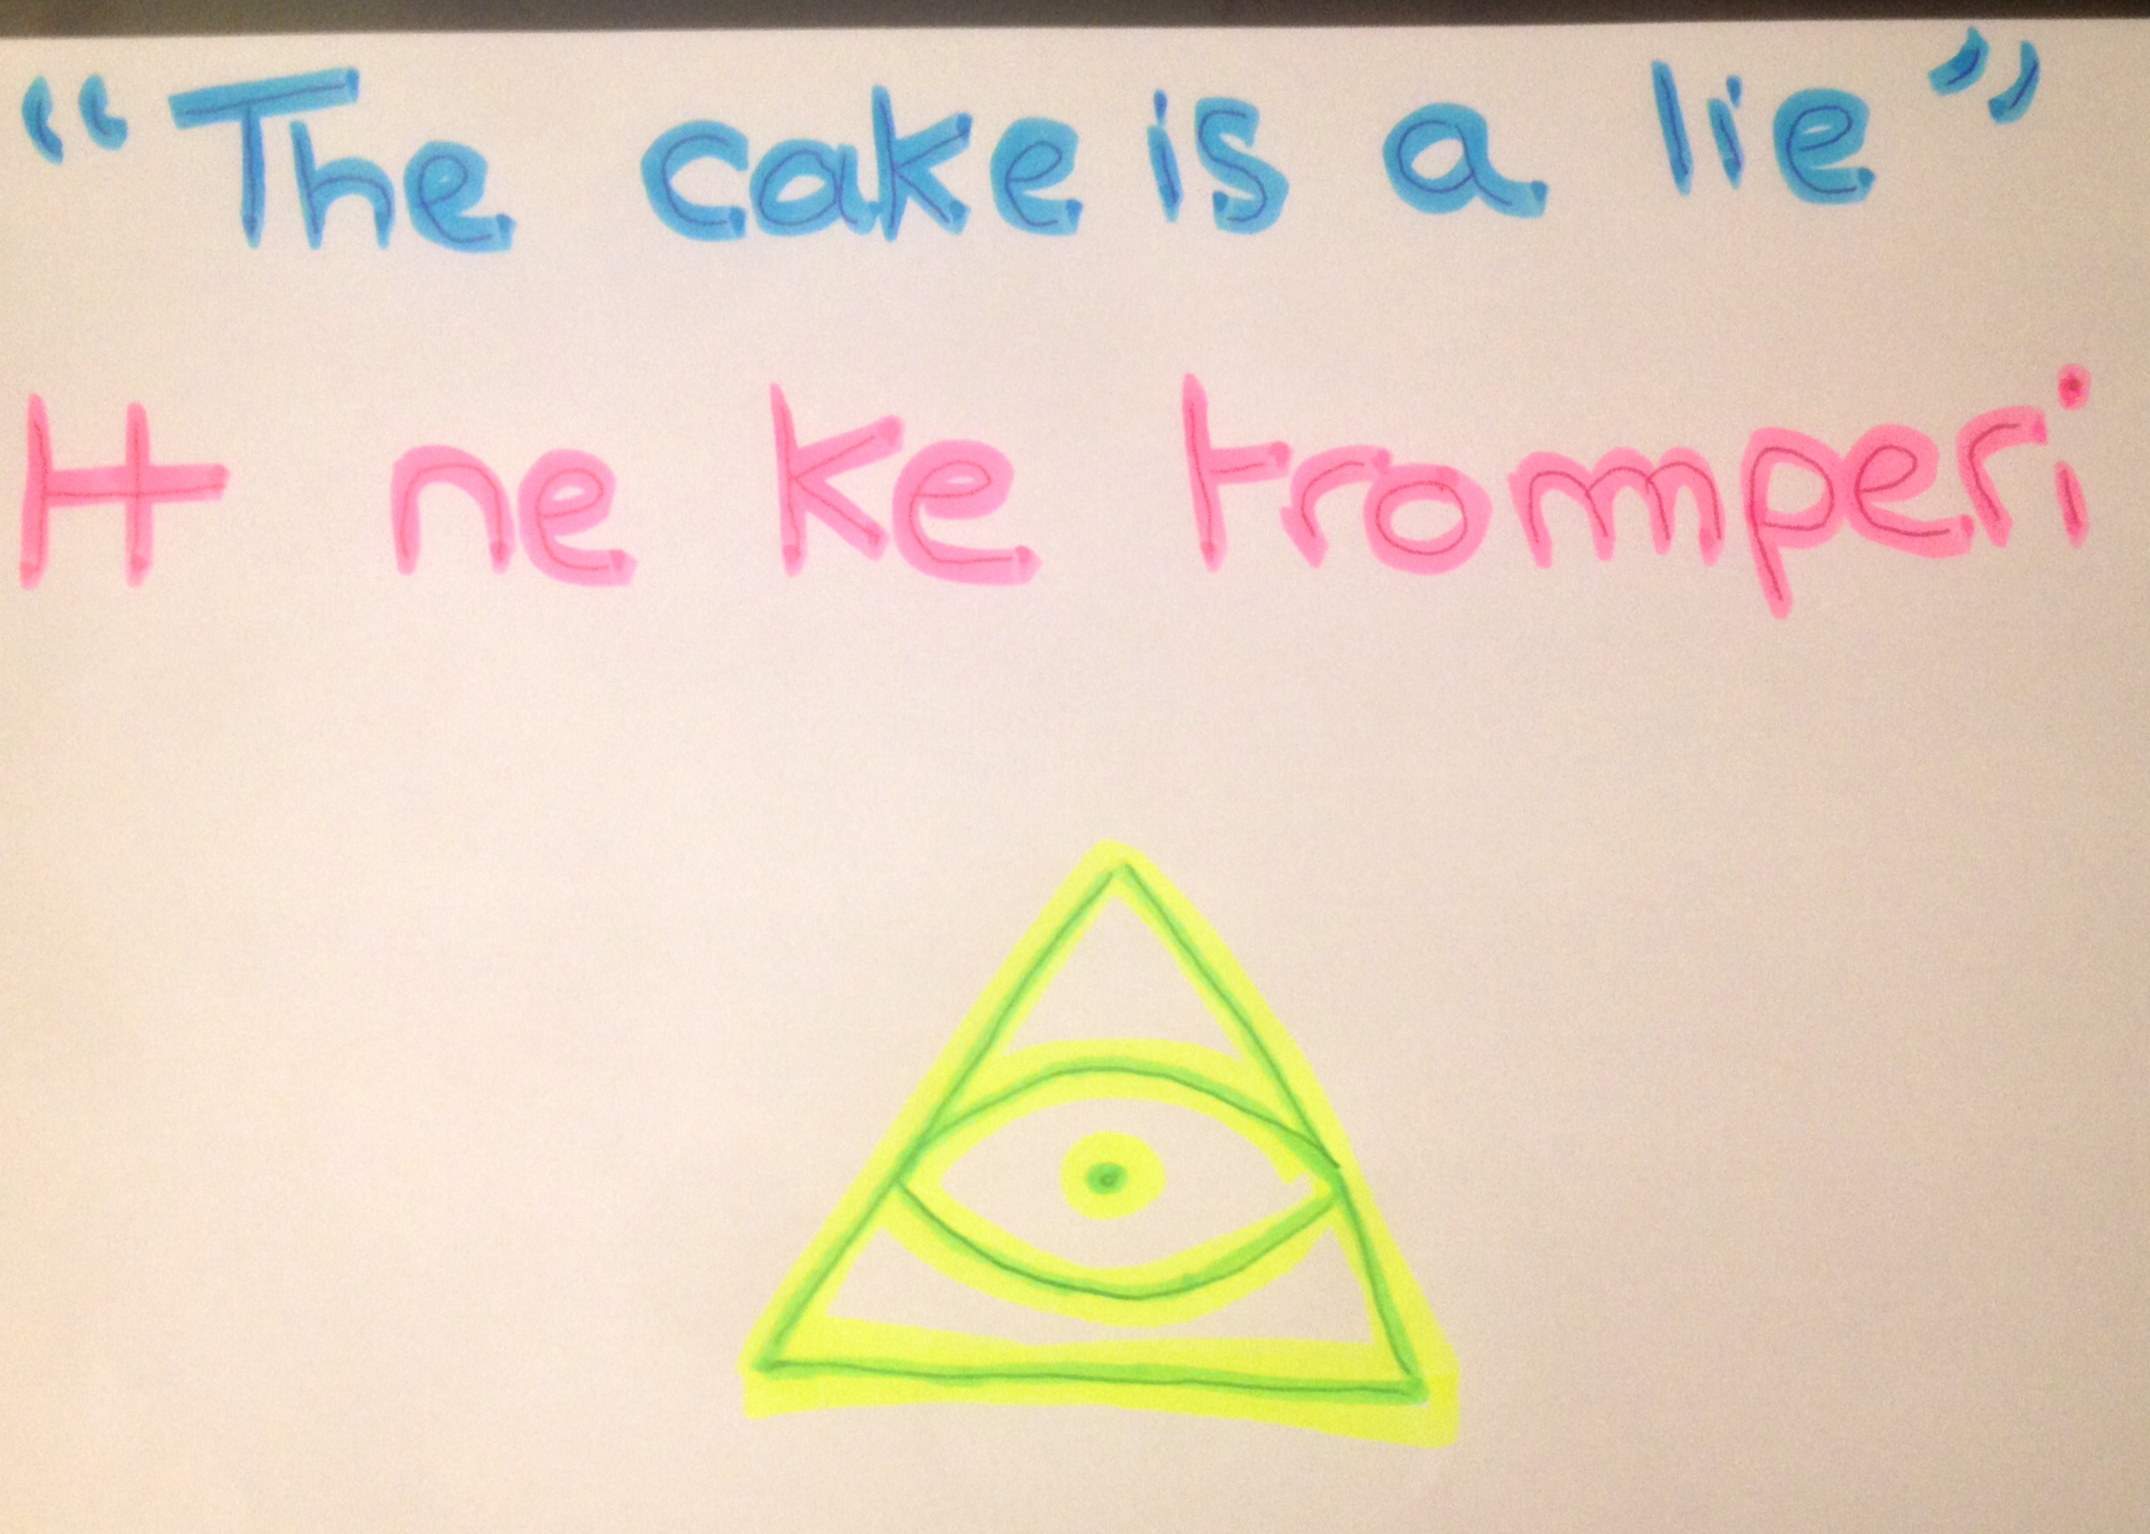 “The cake is a lie”
H ne ke tromperi